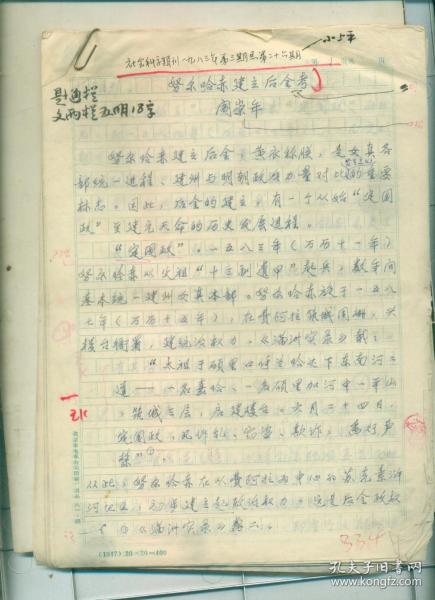 小5.5
社会科学辑刊一九八三年第三期总第二十六期
努尔哈赤建立后金考
阎崇年
题通栏
文两栏五明18字
努尔哈赤建立后金、黄衣称朕，是女真各
部统一进程、建州与明朝政治力量对比的重要
标志。因此，后金的建立，有一个从始“定国
政”至建元天命的历史发展过程。
“定国政”。一五八三年（万历十一年）
努尔哈赤以父祖“十三副遗甲”起兵，数年间
基本统一建州女真本部。努尔哈赤于一五八
七年（万历十五年），在费阿拉筑城
楼台，建统治权力。《满洲实录》载：
“太祖于硕里口呼兰哈达下东南河二
道——一名嘉哈、一名硕里加河中一平山
，筑城三层，启建楼台。六月二十四日，
定国政，凡作乱、窃盗、欺诈，悉行严
禁”①。
从此，努尔哈赤在以费阿拉为中心的苏克素浒
河地区，初步建立起政治权力。这是后金政权
①《满洲实录》卷二。
334
(1817)20×20=400
孔夫子旧书网
www.kongfz.com